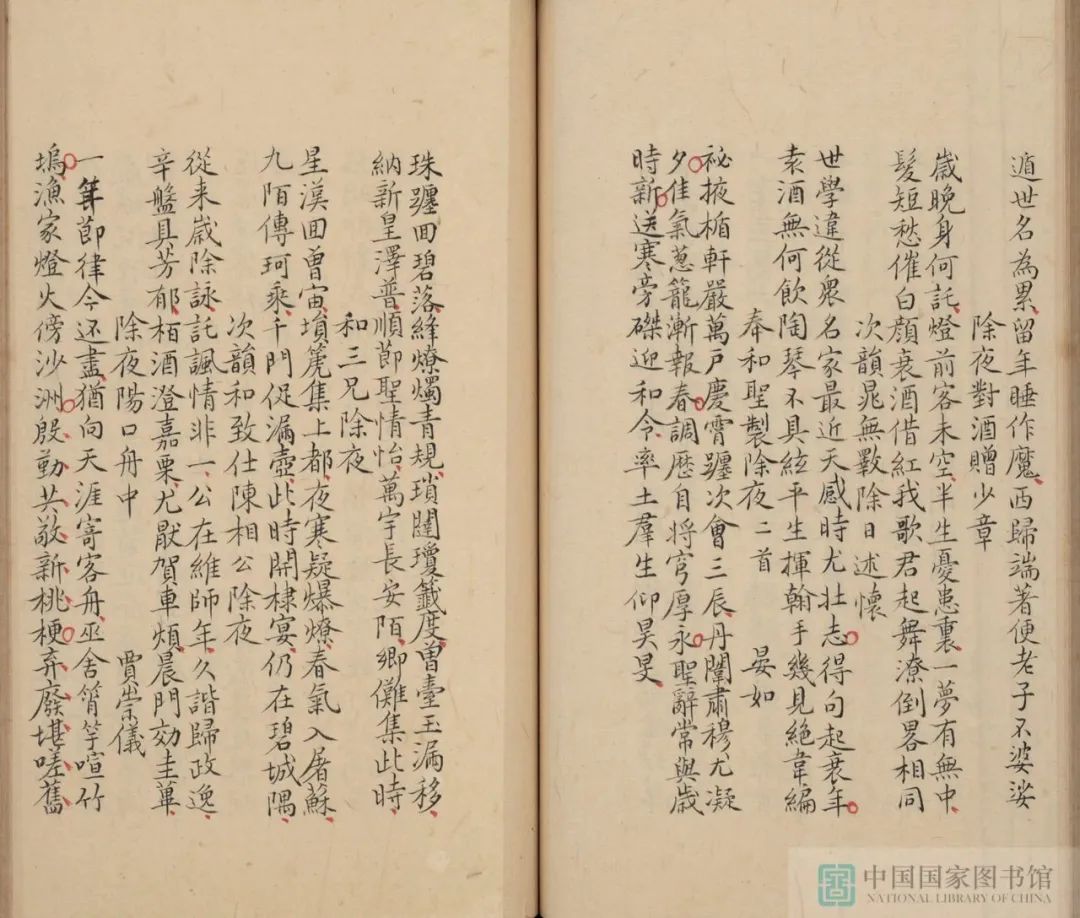 遁世名為累留年睡作魔西歸端著便老子不婆娑
除夜對酒贈少章
歲晚身何託燈前客未空半生憂患裏一夢有無中
髮短愁催白顏衰酒借紅我歌君起舞潦倒畧相同
次韻晁無斁除日述懷
世學違從衆名家最近天感時尤壯志得句起衰年
袁酒無何飲陶琴不具絃平生揮翰手幾見絶韋編
奉和聖製除夜二首 晏如
祕掖楯軒嚴萬戸慶霄躔次會三辰丹闈肅穆尤凝
夕佳氣蔥籠漸報春調歷自將穹厚永聖辭常與歲
時新送寒旁磔迎和令率土羣生仰昊旻
珠躔囬碧落絳燎燭青規瑣闥瓊籤度曽臺玉漏移
納新皇澤普順節聖情怡萬宇長安陌鄉儺集此時
和三兄除夜
星漢囬曽宙塤篪集上都夜寒疑爆燎春氣入屠蘇
九陌傳珂乘千門促漏壺此時開棣宴仍在碧城隅
次韻和致仕陳相公除夜
從来歲除詠託諷情非一公在維師年久諧歸政逸
辛盤具芳郁栢酒澄嘉栗尤猒賀車煩晨門効圭蓽
除夜陽口舟中 賈崇儀
一年節律今还盡猶向天涯寄客舟巫舍簫竽喧竹
塢漁家燈火傍沙洲殷勤共敬新桃梗弃廢堪嗟舊
中国国家图书馆
NATIONAL LIBRARY OF CHINA